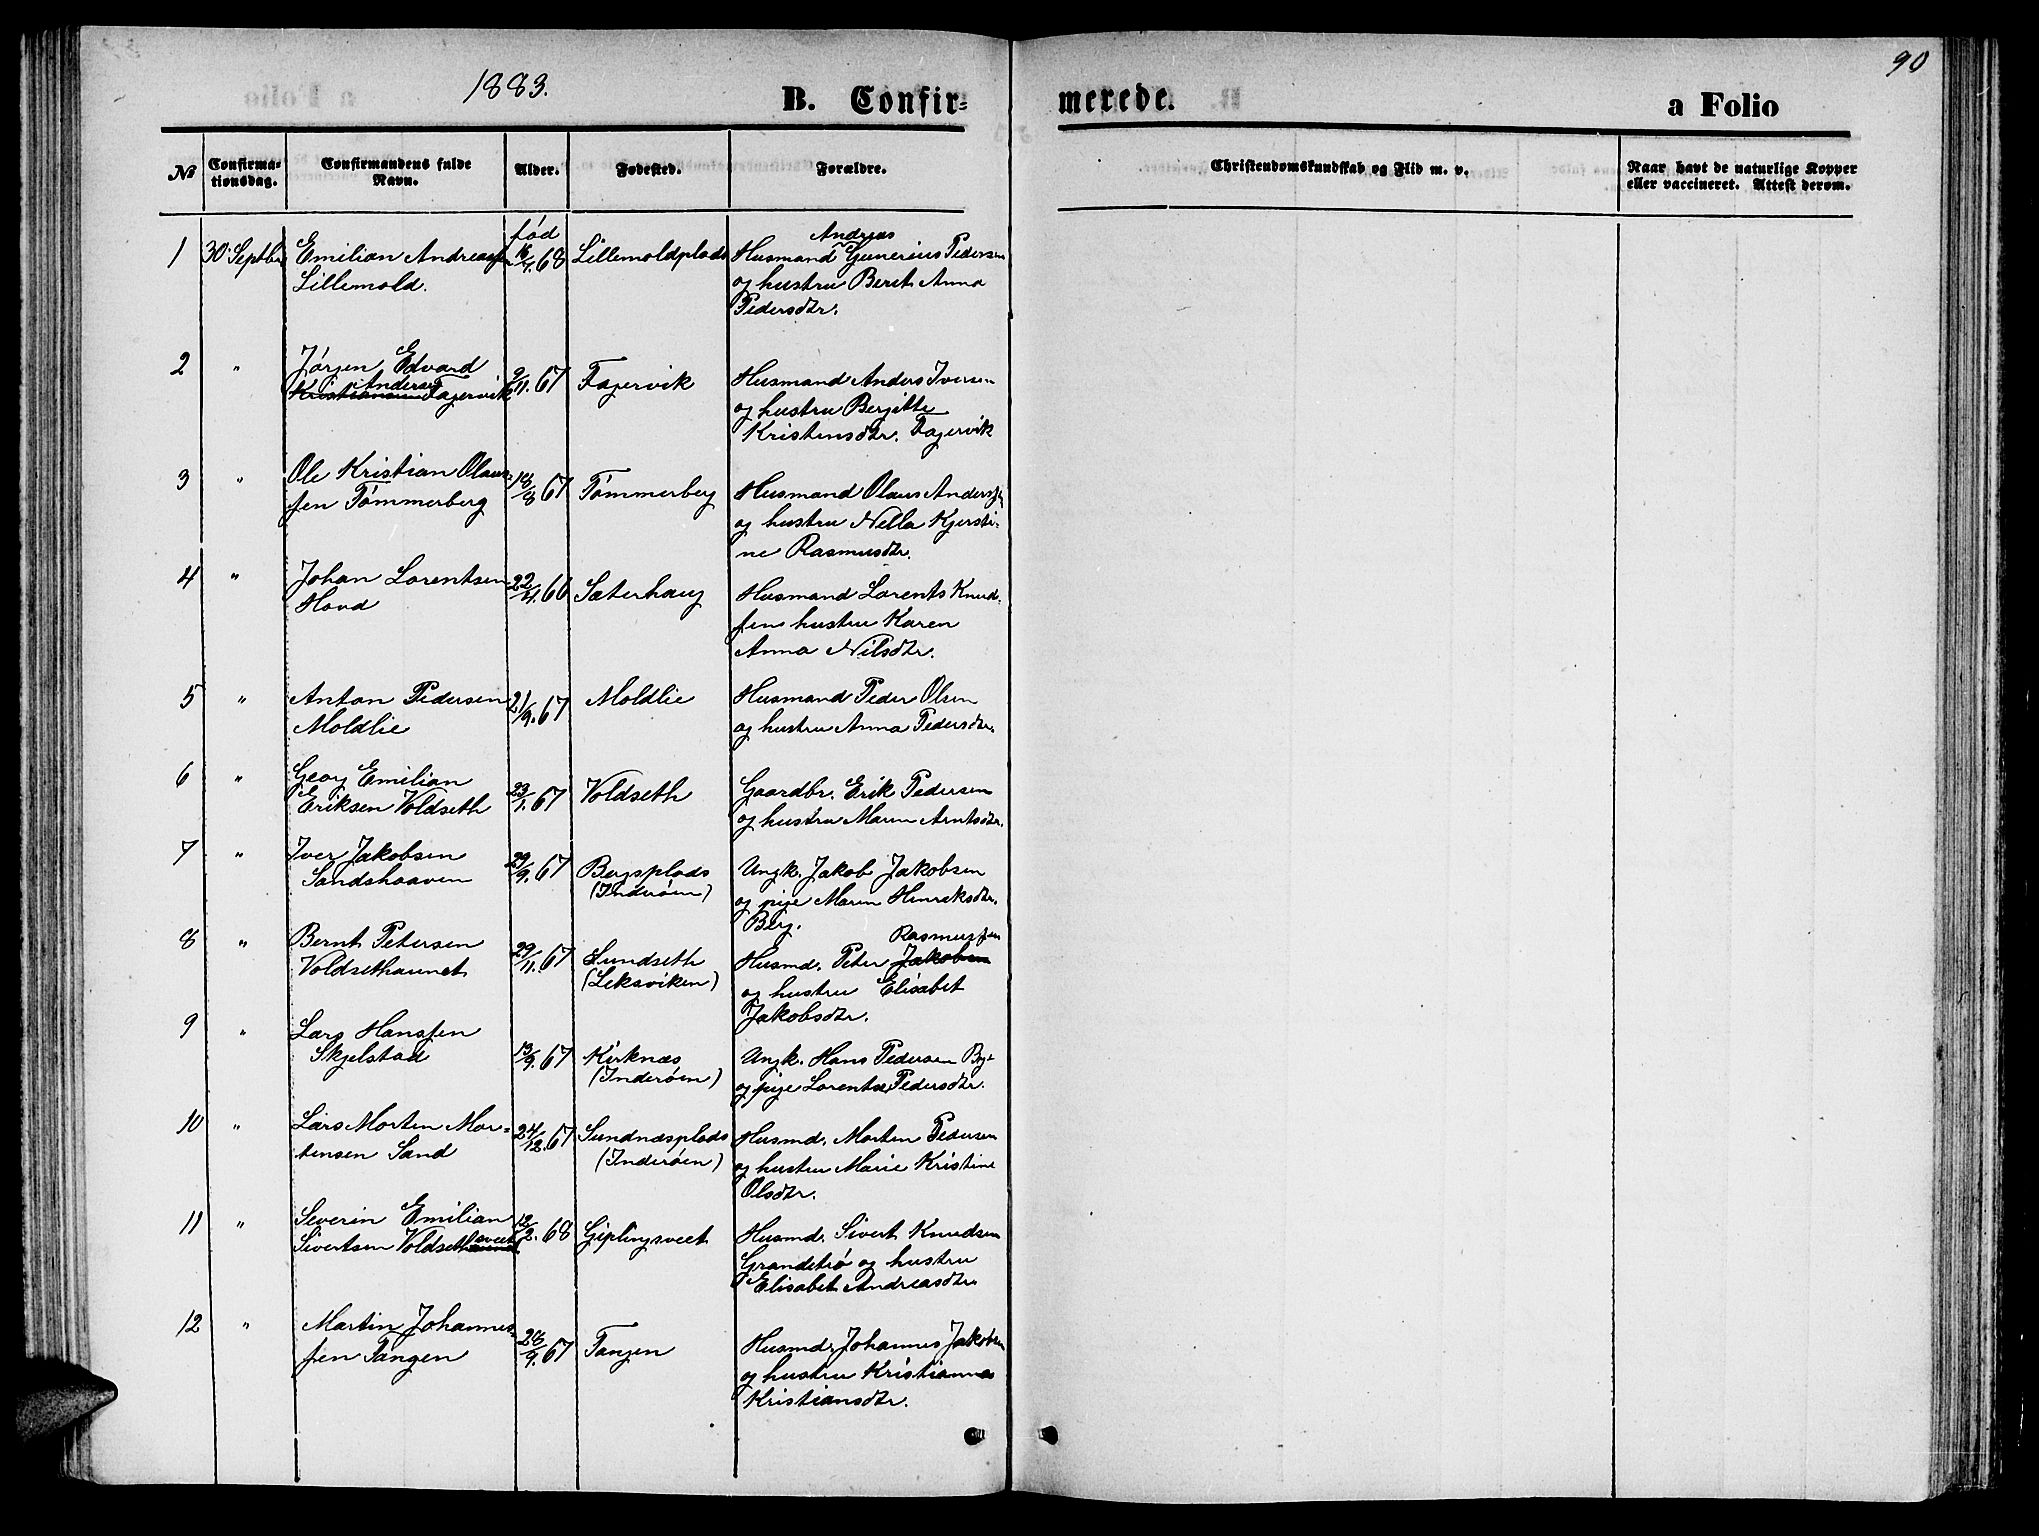 90
1883.
B. Confir-
merede.
a Folio
No
Confirma-
tionsdag.
Confirmandens fulde
Navn.
Alder.
Fødested.
Forældre.
Christendomskundskab og Flid m. v.
Naar havt de naturlige Kopper
eller vaccineret. Attest derom.
1 30 Septbr Emilian Andreassen
Lillemold.
fød
16/4. 68
Lillemoldplads
Andreas
Husmand Gunerius Pedersen
og hustru Berit Anna
Pedersdtr.
2 " Jørgen Edvard
Anders
Kristiansen Fagervik
9/11. 67
Fagervik
Husmand Anders Iversen
og hustru Bergitte
Kristensdtr. Fagervik
3 " Ole Kristian Olaus-
sen Tømmerberg
18/8 67
Tømmerberg
Husmand Olaus Anderssen
og hustru Nella Kjersti-
ne Rasmusdtr.
4 " Johan Lorentsen
Hovd
22/4. 66
Sæterhaug
Husmand Lorents Knud-
sen hustru Karen
Anna Nilsdtr.
5 " Anton Pedersen
Moldlie
21/9. 67
Moldlie
Husmand Peder Olsen
og hustru Anna Pedersdtr.
6 " Georg Emilian
Eriksen Voldseth
23/1. 67
Voldseth
Gaardbr. Erik Pedersen
og hustru Maren Arntsdtr.
7 " Iver Jakobsen
Sandshaaven
29/9. 67
Bergsplads
(Inderøen)
Ungk. Jakob Jakobsen
og pige Maren Henriksdtr.
Berg.
8 " Bernt Petersen
Voldsethaunet
29/11. 67
Sundseth
(Leksviken)
Rasmussen
Husmd. Peter Jakobsen
og hustru Elisabet
Jakobsdtr.
9 " Lars Hanssen
Skjelstad
13/9. 67
Kirknæs
(Inderøen)
Ungk. Hans Pedersen By
og pige Lorentse Pedersdtr.
10 " Lars Morten Mor-
tensen Sand
24/12. 67
Sundnæsplads
(Inderøen)
Husmd. Morten Pedersen
og hustru Marie Kristine
Olsdtr.
11 " Severin Emilian
Sivertsen Voldsethsveet
12/2. 68
Giplingsveet
Husmd. Sivert Knudsen
Grandetrø og hustru
Elisabet Andreasdtr
12 " Martin Johannes-
sen Tangen
28/9. 67
Tangen
Husmd. Johannes Jakobsen
og hustru Kristianna
Kristiansdtr.